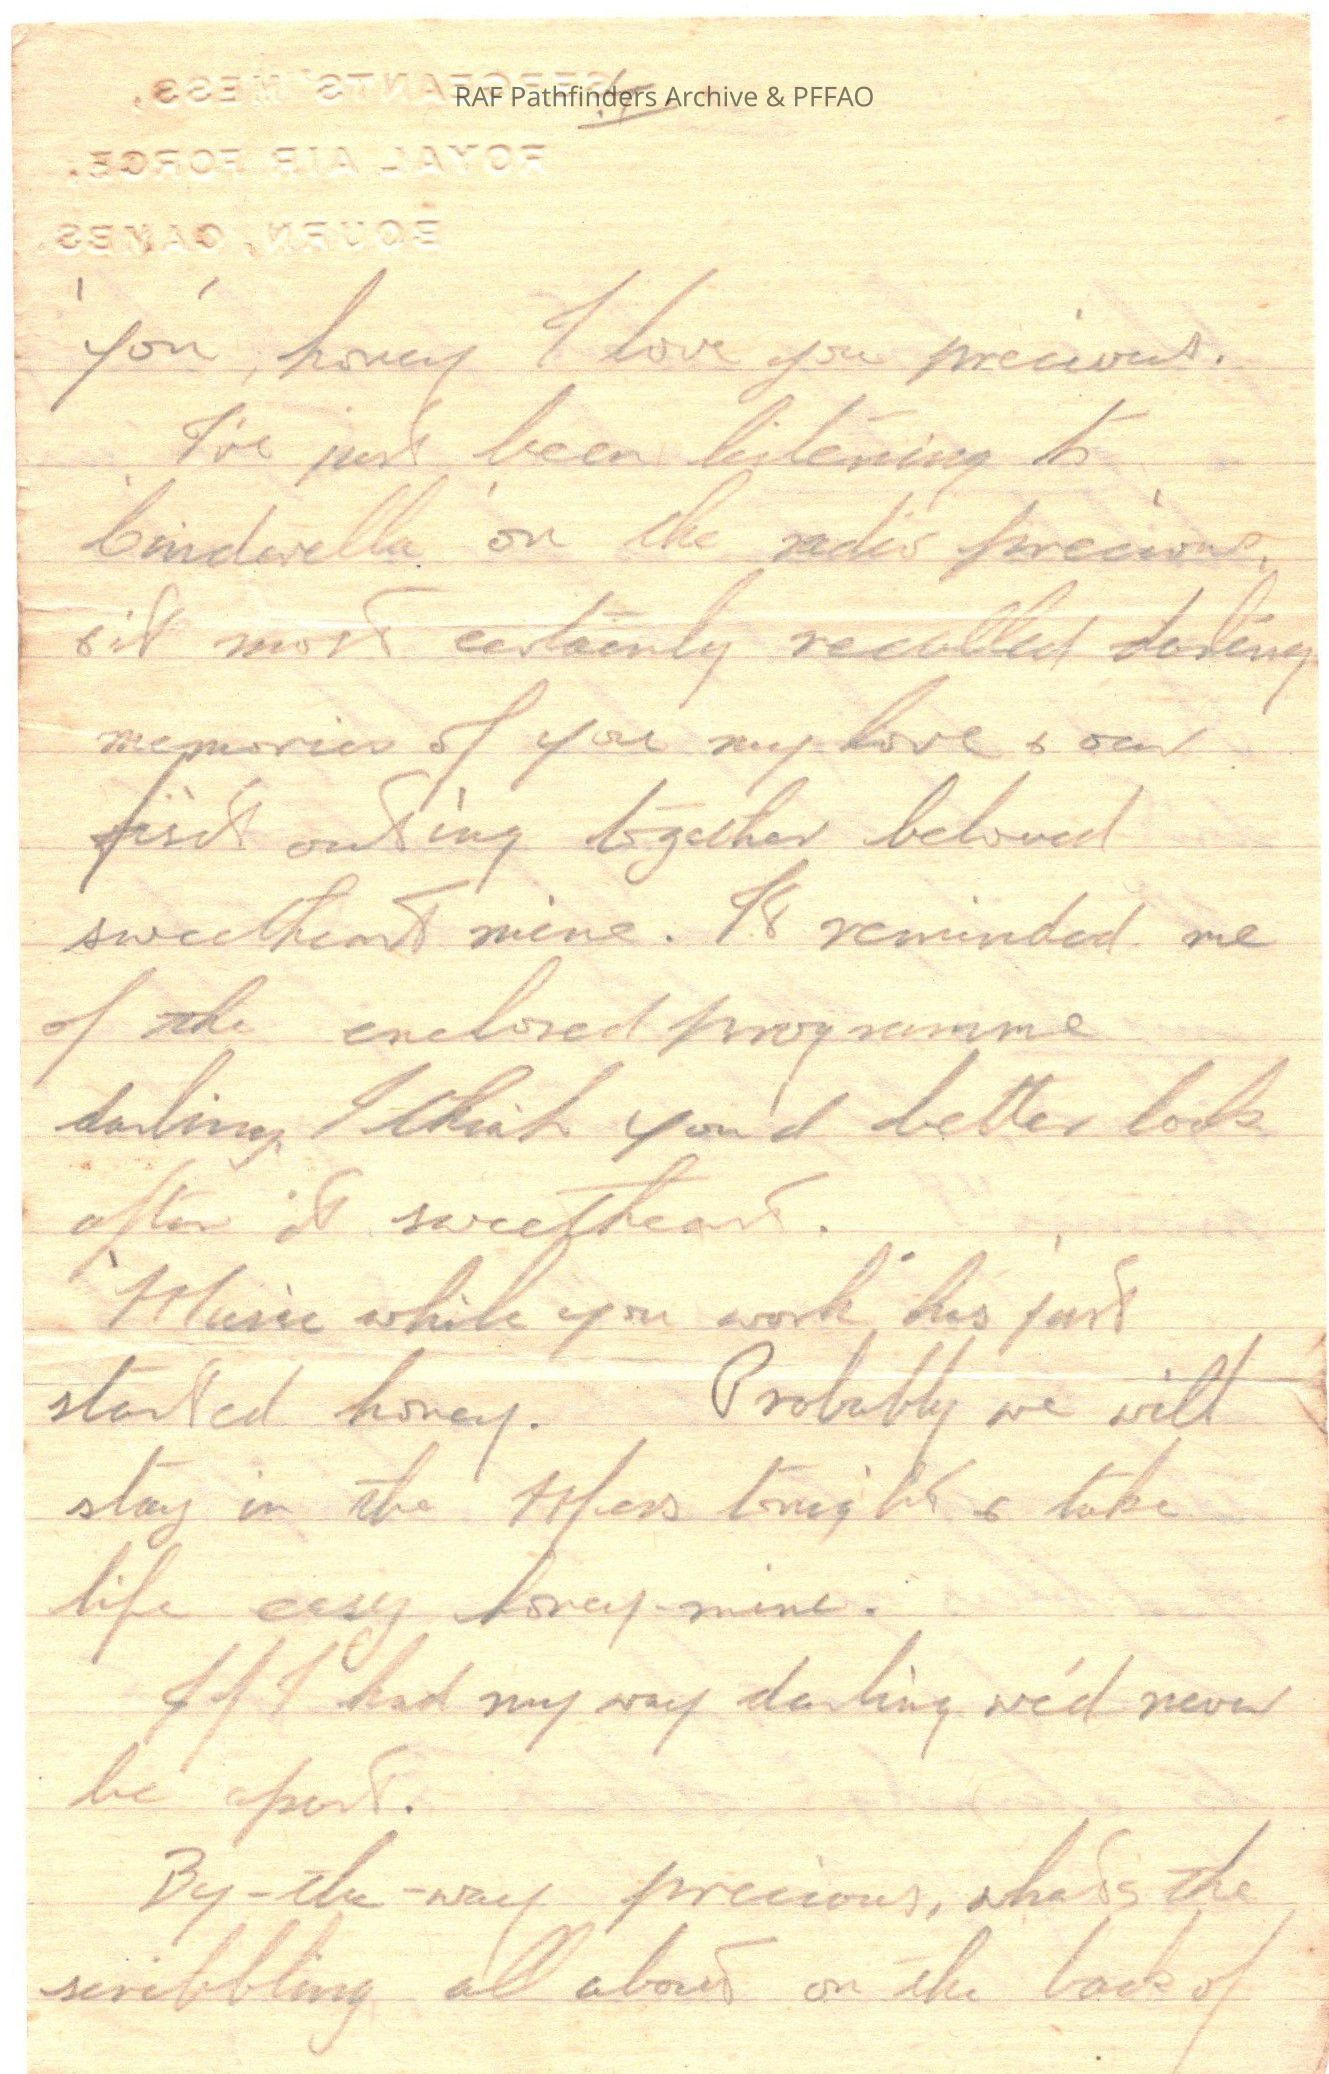 SERGEANTS' MESS,
RAF Pathfinders Archive & PFFAO
ROYAL AIR FORCE,
BOURN, CAMBS.
'you', honey I love you precious.
I've just been listening to
'Cinderella' on the radio precious,
& it most certainly recalled darling
memories of you my love & our
first outing together beloved
sweetheart mine. It reminded me
of the enclosed programme
darling, I think you'd better look
after it sweetheart.
'Music while you work' has just
started honey. Probably we will
stay in the Mess tonight & take
life easy honey-mine.
If I had my way darling we'd never
be apart.
By-the-way precious, what's the
scribbling all about on the back of